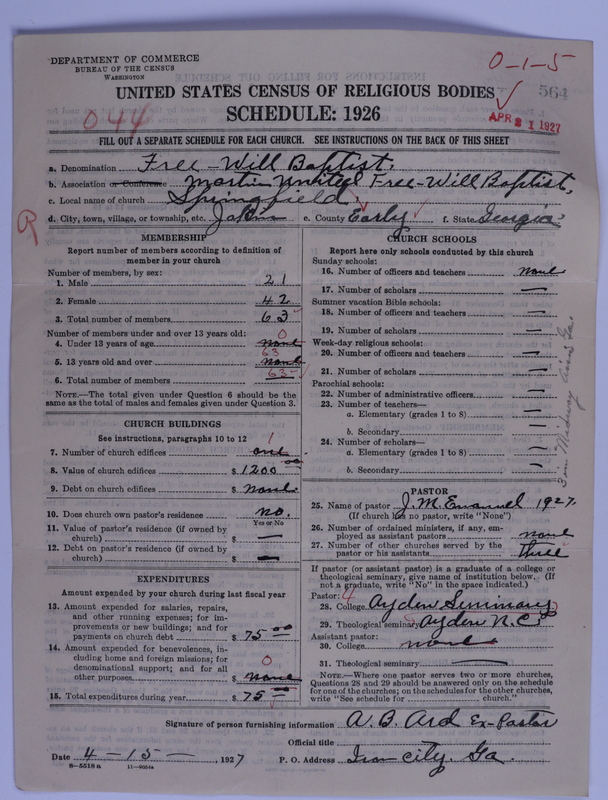 DEPARTMENT OF COMMERCE
BUREAU OF THE CENSUS
WASHINGTON
0-1-5
564
UNITED STATES CENSUS OF RELIGIOUS BODIES
SCHEDULE: 1926
044
APR 21 1927
FILL OUT A SEPARATE SCHEDULE FOR EACH CHURCH. SEE INSTRUCTIONS ON THE BACK OF THIS SHEET
a. Denomination Free-Will Baptist.
b. Association or Conference Martin United Free-Will Baptist,
c. Local name of church Springfield,
d. City, town, village, or township, etc. Jakin e. County Early f. State Georgia
MEMBERSHIP
Report number of members according to definition of
member in your church
Number of members, by sex:
1. Male 21
2. Female 42
3. Total number of members 63
Number of members under and over 13 years old: 0
4. Under 13 years of age none
63
5. 13 years old and over none
6. Total number of members 63
NOTE.—The total given under Question 6 should be
same as the total of males and females given under Question 3.
CHURCH BUILDINGS
See instructions, paragraphs 10 to 12 1
7. Number of church edifices one
8. Value of church edifices $ 1200 00
9. Debt on church edifices $ none.
10. Does church own pastor's residence no.
Yes or No
11. Value of pastor's residence (if owned by
church) $ —
12. Debt on pastor's residence (if owned by
church) $ —
EXPENDITURES
Amount expended by your church during last fiscal year
13. Amount expended for salaries, repairs,
and other running expenses; for im-
provements or new buildings; and for
payments on church debt $ 75 00
14. Amount expended for benevolences, in-
cluding home and foreign missions; for
denominational support; and for all 0
other purposes $ none
15. Total expenditures during year $ 75 00
CHURCH SCHOOLS
Report here only schools conducted by this church
Sunday schools:
16. Number of officers and teachers none
17. Number of scholars —
Summer vacation Bible schools:
18. Number of officers and teachers —
19. Number of scholars —
Week-day religious schools:
20. Number of officers and teachers —
21. Number of scholars —
Parochial schools:
22. Number of administrative officers —
23. Number of teachers—
a. Elementary (grades 1 to 8) —
b. Secondary —
24. Number of scholars—
a. Elementary (grades 1 to 8) —
b. Secondary —
PASTOR
25. Name of pastor J. M. Emanuel 1927.
(If church has no pastor, write "None")
26. Number of ordained ministers, if any, em-
ployed as assistant pastors none
27. Number of other churches served by the
pastor or his assistants three
If pastor (or assistant pastor) is a graduate of a college or
theological seminary, give name of institution below. (If
not a graduate, write "No" in the space indicated.)
Pastor: 4
28. College Ayden Seminary
29. Theological seminary Ayden N.C.
Assistant pastor:
30. College none
31. Theological seminary —
NOTE.—Where one pastor serves two or more churches,
Questions 28 and 29 should be answered only on the schedule
for one of the churches; on the schedules for the other churches,
write "See schedule for church."
Signature of person furnishing information A. B. Ard Ex-Pastor
Official title
Date 4-15-, 1927 P. O. Address Iron city. Ga.
8—5518 a 11—9054a